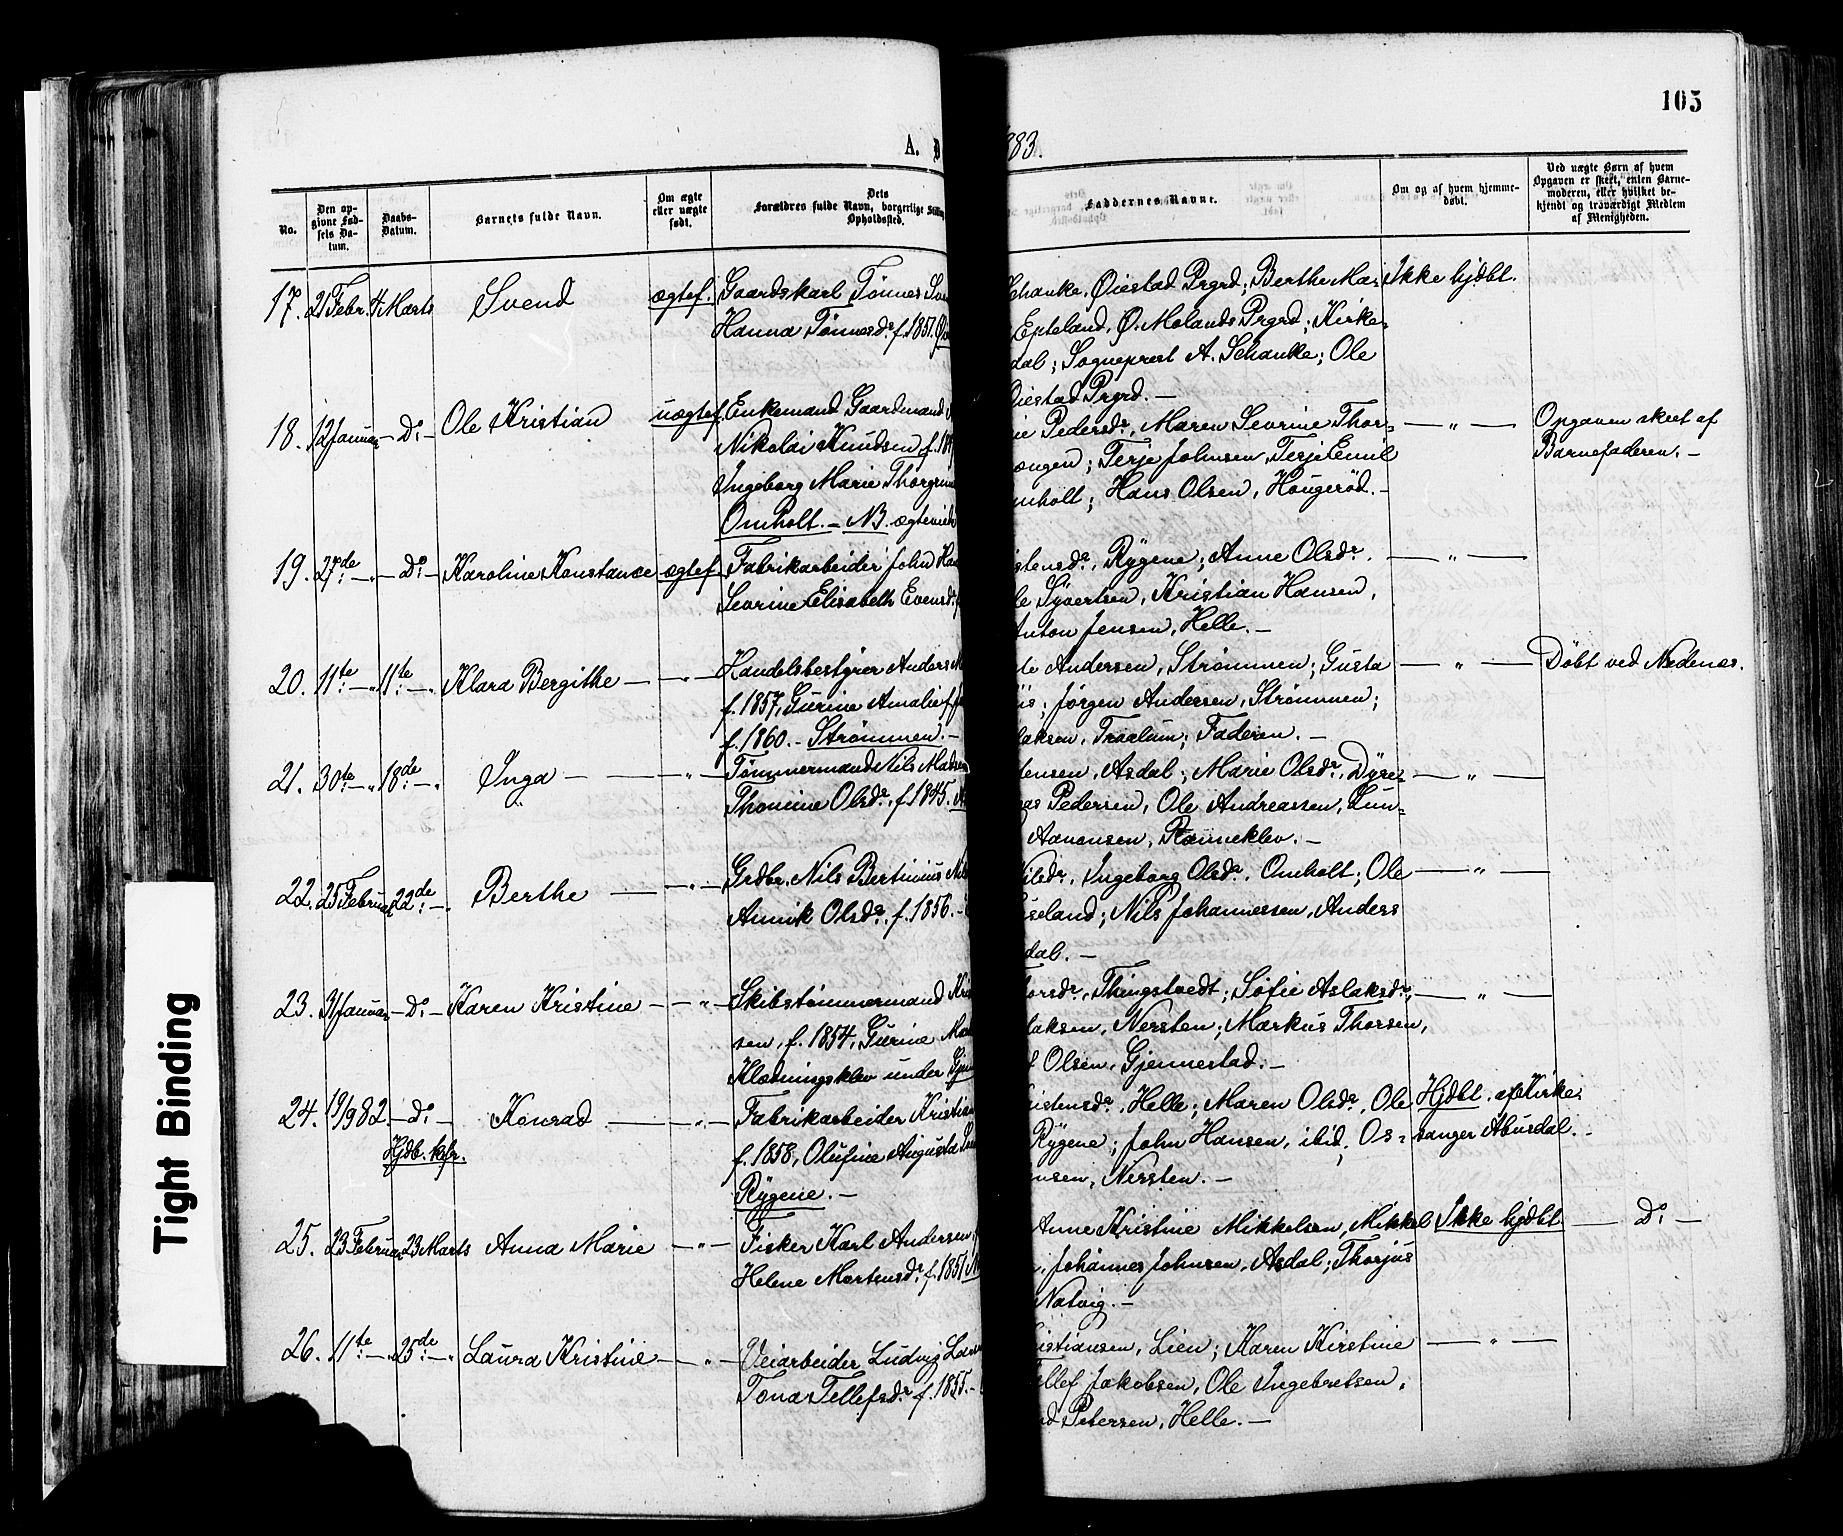 105
A. D 883.
No.
Den op-
givne Fød-
sels Da-
tum.
Daabs-
Datum.
Barnets fulde Navn.
Om ægte
eller uægte
født.
Dets
Forældres fulde Navn, borgerlige Stilling
Opholdssted.
Faddernes Navne.
Om og af hvem hjemme-
døbt.
Ved uægte Børn af hvem
Opgaven er skeet, enten Barne-
moderen, eller hvilket be-
kjendt og troværdigt Medlem
af Menigheden.
17. 21 Febr. 4 Marts Svend ægtef. Gaardskarl Tønnes Sve
Hanna Tønnesdr. f. 1851.
Schanke, Øiestad Prgrd; Berthe Mar Ikke hjdbt.
Epteland, Ø. Molands Prgrd; Kirke-
dal; Sogneprest A. Schanke; Ole
Øiestad Prgrd. —
18. 12 Januar — Do — Ole Kristian uægtef. Enkemand Gaardmand
Nikolai Knudsen f. 18
Ingeborg Marie Thorgrim
Omholt. — NB. ægtevied
ie Pedersdr, Maren Sevrine Thor- — " — Opgaven skeet af
ongen; Terje Johnsen, Terje Emil Barnefaderen. —
mholt; Hans Olsen, Hougerød. —
19. 27de — " — Do — Karoline Konstance ægtef. Fabrikarbeider John Han
Sevrine Elisabeth Evensdr.
istensdr, Rygene; Anne Olsdr. — " —
le Syvertsen, Kristian Hansen,
Anton Jensen, Helle. —
20. 11te — " 11te — " Klara Bergithe — " — Handelsbestyrer Anders
f. 1857, Gurine Amalie
f. 1860. — Strømmen. —
te Andersen, Strømmen; Gusta — " — Døbt ved Nedenes.
is; Jørgen Andersen, Strømmen;
laksen, Traalum; Faderen. —
21. 30te — " 18de — " Inga — " — Tømmermand Nils Mads
Thomine Olsdr. f. 1845.
densen, Asdal; Marie Olsdr, Dyre- — " —
as Pedersen, Ole Andreassen, Lun-
Aanonsen, Rønneklev. —
22. 25 Februar 22de — " Berthe — " — Grdbr. Nils Bertinius Nils
Annik Olsdr. f. 1856. —
Nilsdr, Ingeborg Olsdr, Omholt; Ole — " —
seland; Nils Johannessen, Anders
dal. —
23. 31 Januar — Do — Karen Kristine — " — Skibstømmermand Kris
sen, f. 1854, Gurine
Klødningsklev under Gjen
Thorsdr, Thingstvedt; Sofie Aslaksdr, — " —
laksen, Nersten; Markus Thorsen,
f Olsen, Gjennestad. —
24. 19/9 82 — Do — Konrad — " — Fabrikarbeider Kristian
Hjdb. kfr. f. 1858, Olufine Augusta
Rygene. —
istensdr, Helle; Maren Olsdr, Ole Hjdbt af Kirke-
Rygene; John Hansen, ibid; Os- sanger Abusdal. —
nsen, Nersten. —
25. 23 Februar 23 Marts Anna Marie — " — Fisker Karl Andersen,
Helene Mortensdr. f. 1851
Anne Kristine Mikkelsen, Mikkel Ikke hjdbt — Do —
, Johannes Johnsen, Asdal; Thorjus
Natvig. —
26. 11te — " 25de — " Laura Kristine — " — Veiarbeider Ludvig
Tona Tellefsdr. f. 1855. —
istiansen, Lien; Karen Kirstine — " —
llef Jakobsen, Ole Ingebretsen,
d Petersen, Helle. —
Tight Binding